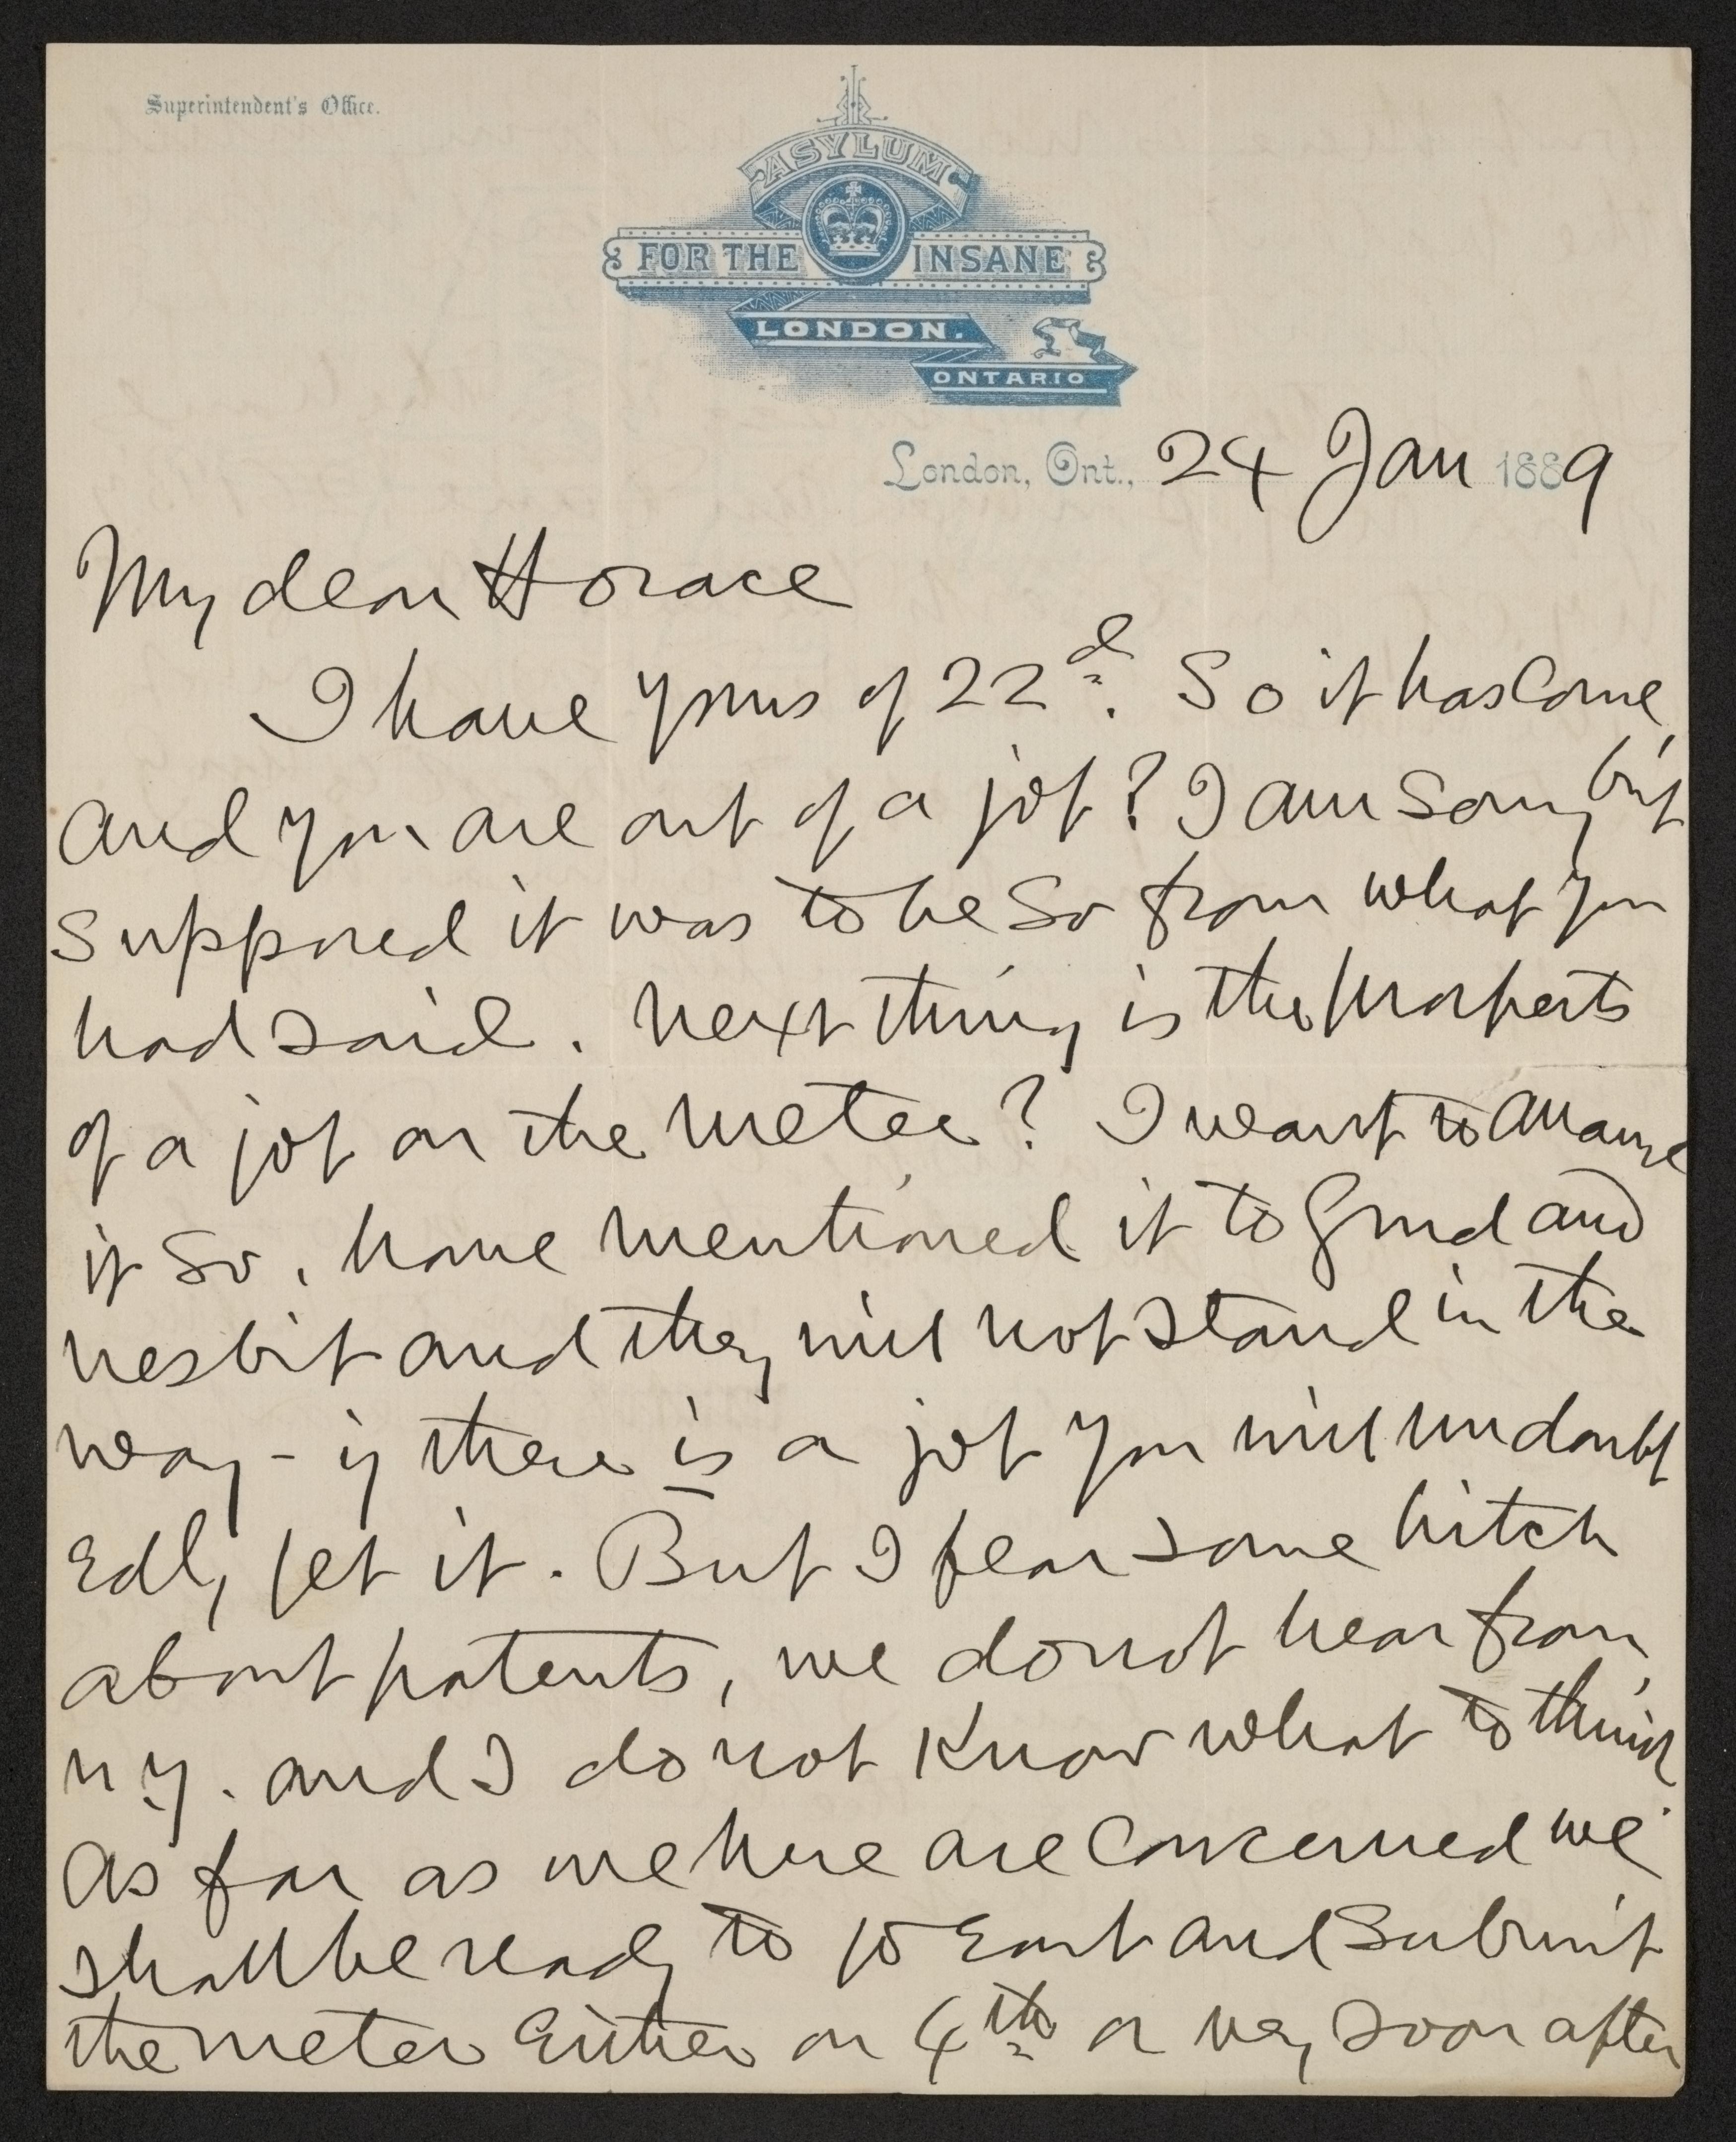 Superintendent's Office.
ASYLUM
FOR THE INSANE
LONDON.
ONTARIO
London, Ont., 24 Jan 1889
My dear Horace
I have yours of 22d. So it has come,
and you are out of a job? I am sorry but
supposed it was to be so from what you
had said. Next thing is the prospects
of a job on the meter? I want to arrange
it so, have mentioned it to Gurd and
Nesbit and they will not stand in the
way - if there is a job you will undoubt
edly get it. But I fear some hitch
about patents, we do not hear from
N.Y. and I do not know what to think.
As far as we here are concerned we
shall be ready to go East and submit
the meter either on 4th or very soon after